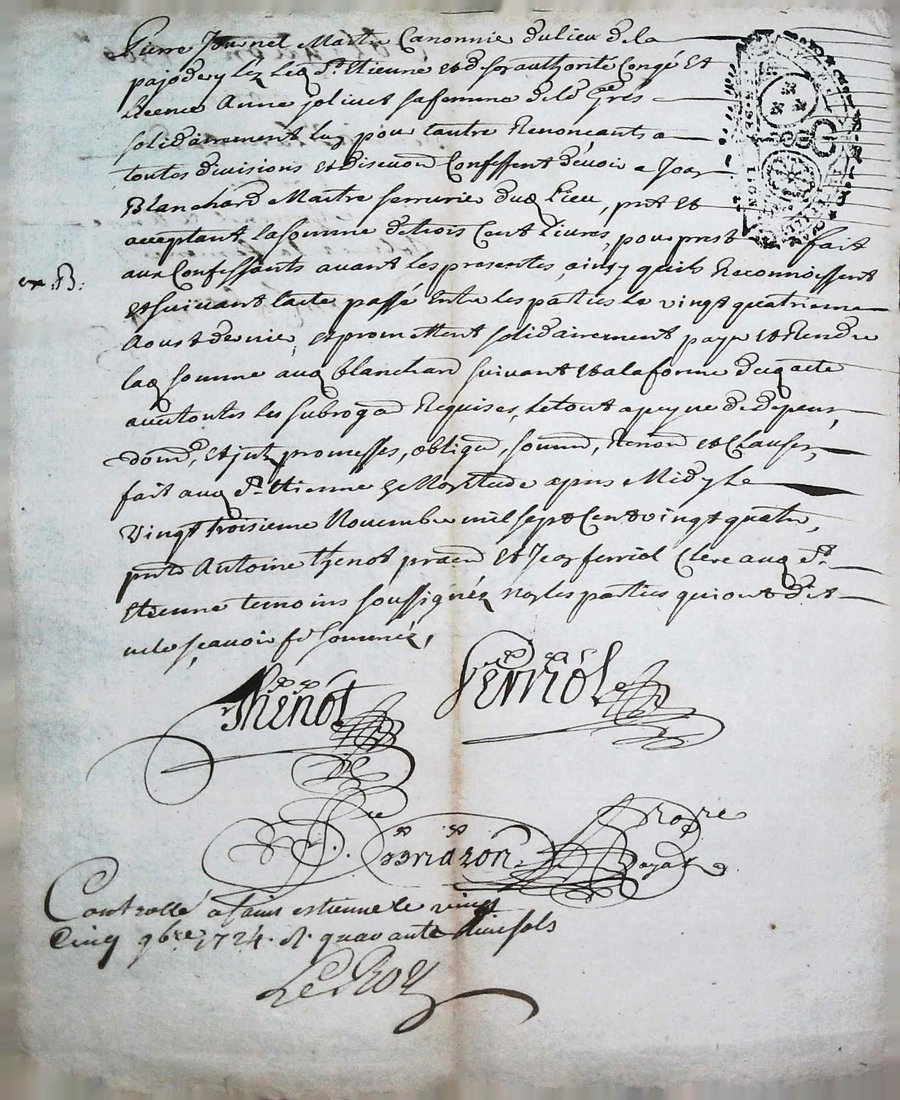 Pierre Journel Maitre Canonnie du lieu de la
pajodery lez led. St. Etienne et de son authorité Congé Et
licence Anne jolivet sa femme de luy
solidairement lun pour lautre Renonceants a
toutes divisions et discution Confessent devoir a Jean
Blanchard Maitre serrurie dud. Lieu, pnt Et
acceptant la somme de trois Cent Livres, pour prest fait
aux Confessants avant les presentes, ainsy quils Reconnoissent
Et suivant lacte passé Entre les parties le vingt quatrieme
Aoust dernie, et promettent solidairement paye et Rendre
lad. somme aud. blanchard suivant et a la forme dud. acte
avec toutes les subrogaõn Requises, le tout a peyne de depens,
dom., Et jnt. promesses, obligaõn, soumõn, Renonõn et Clauses,
fait aud. St. Etienne apres Midy Le
Vingt troisieme Novembre mil sept Cent vingt quatre,
pnts Antoine thenot praõn Et Jean ferriol Clerc aud. St.
Etienne temoins soussignéz non les parties qui ont dit
ne le sçavoir Sommés,
ex. B:
Thenot
Ferriol
Briazon
No.re
Royal
Controllé a saint estienne le vingt
Cinq 9bre 1724. R. quarante sols
LeRoy